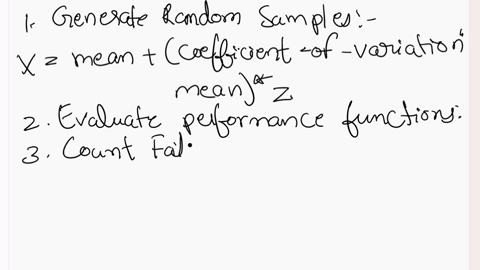 1. Generate Random Samples:-
X = mean + (Coefficient-of-variation*
mean)* Z
2. Evaluate performance functions.
3. Count Fai